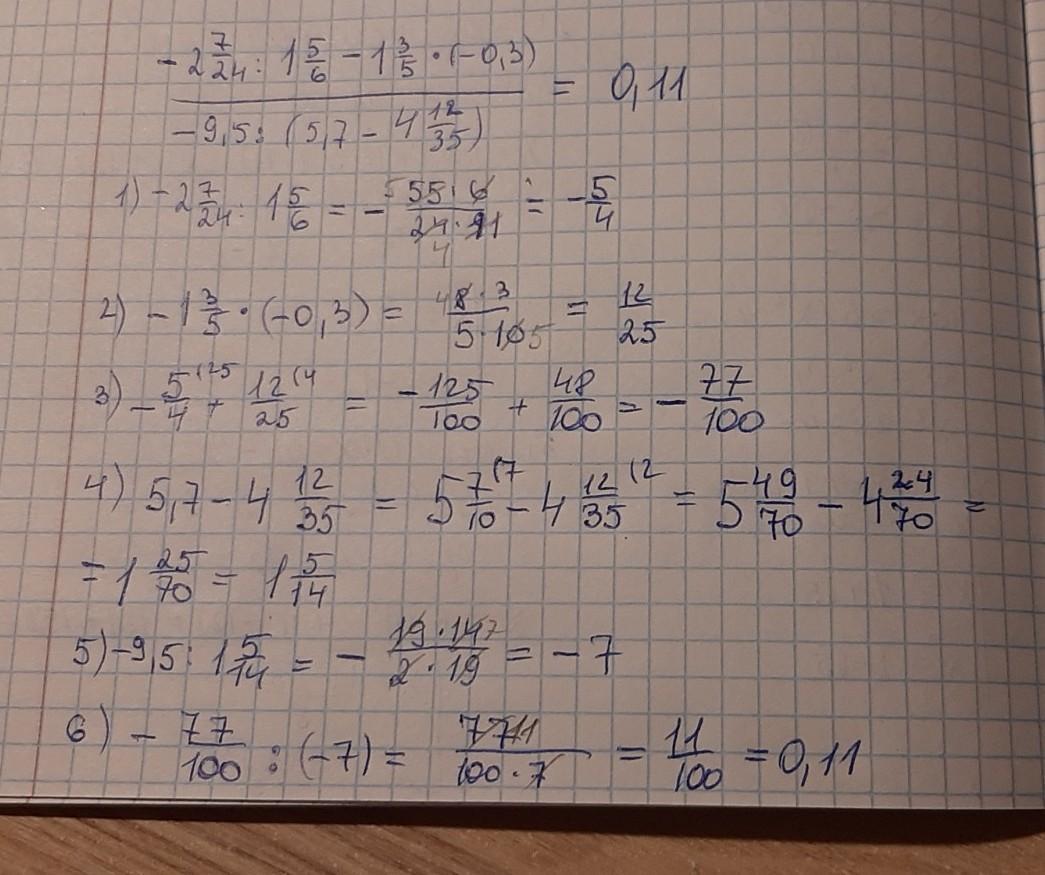 -2 7/24 : 1 5/6 - 1 3/5 · (-0,3)
= 0,11
-9,5 : (5,7 - 4 12/35)
1) -2 7/24 : 1 5/6 = - 5 55·6 / 24·11 4 = -5/4
2) -1 3/5 · (-0,3) = 4 8·3 / 5·10 5 = 12/25
3) -5/4 (25 + 12/25 (4 = -125/100 + 48/100 = -77/100
4) 5,7 - 4 12/35 = 5 7/10 (7 - 4 12/35 (2 = 5 49/70 - 4 24/70 =
= 1 25/70 = 1 5/14
5) -9,5 : 1 5/14 = - 19·14 7 / 2·19 = -7
6) -77/100 : (-7) = 77 11 / 100·7 = 11/100 = 0,11